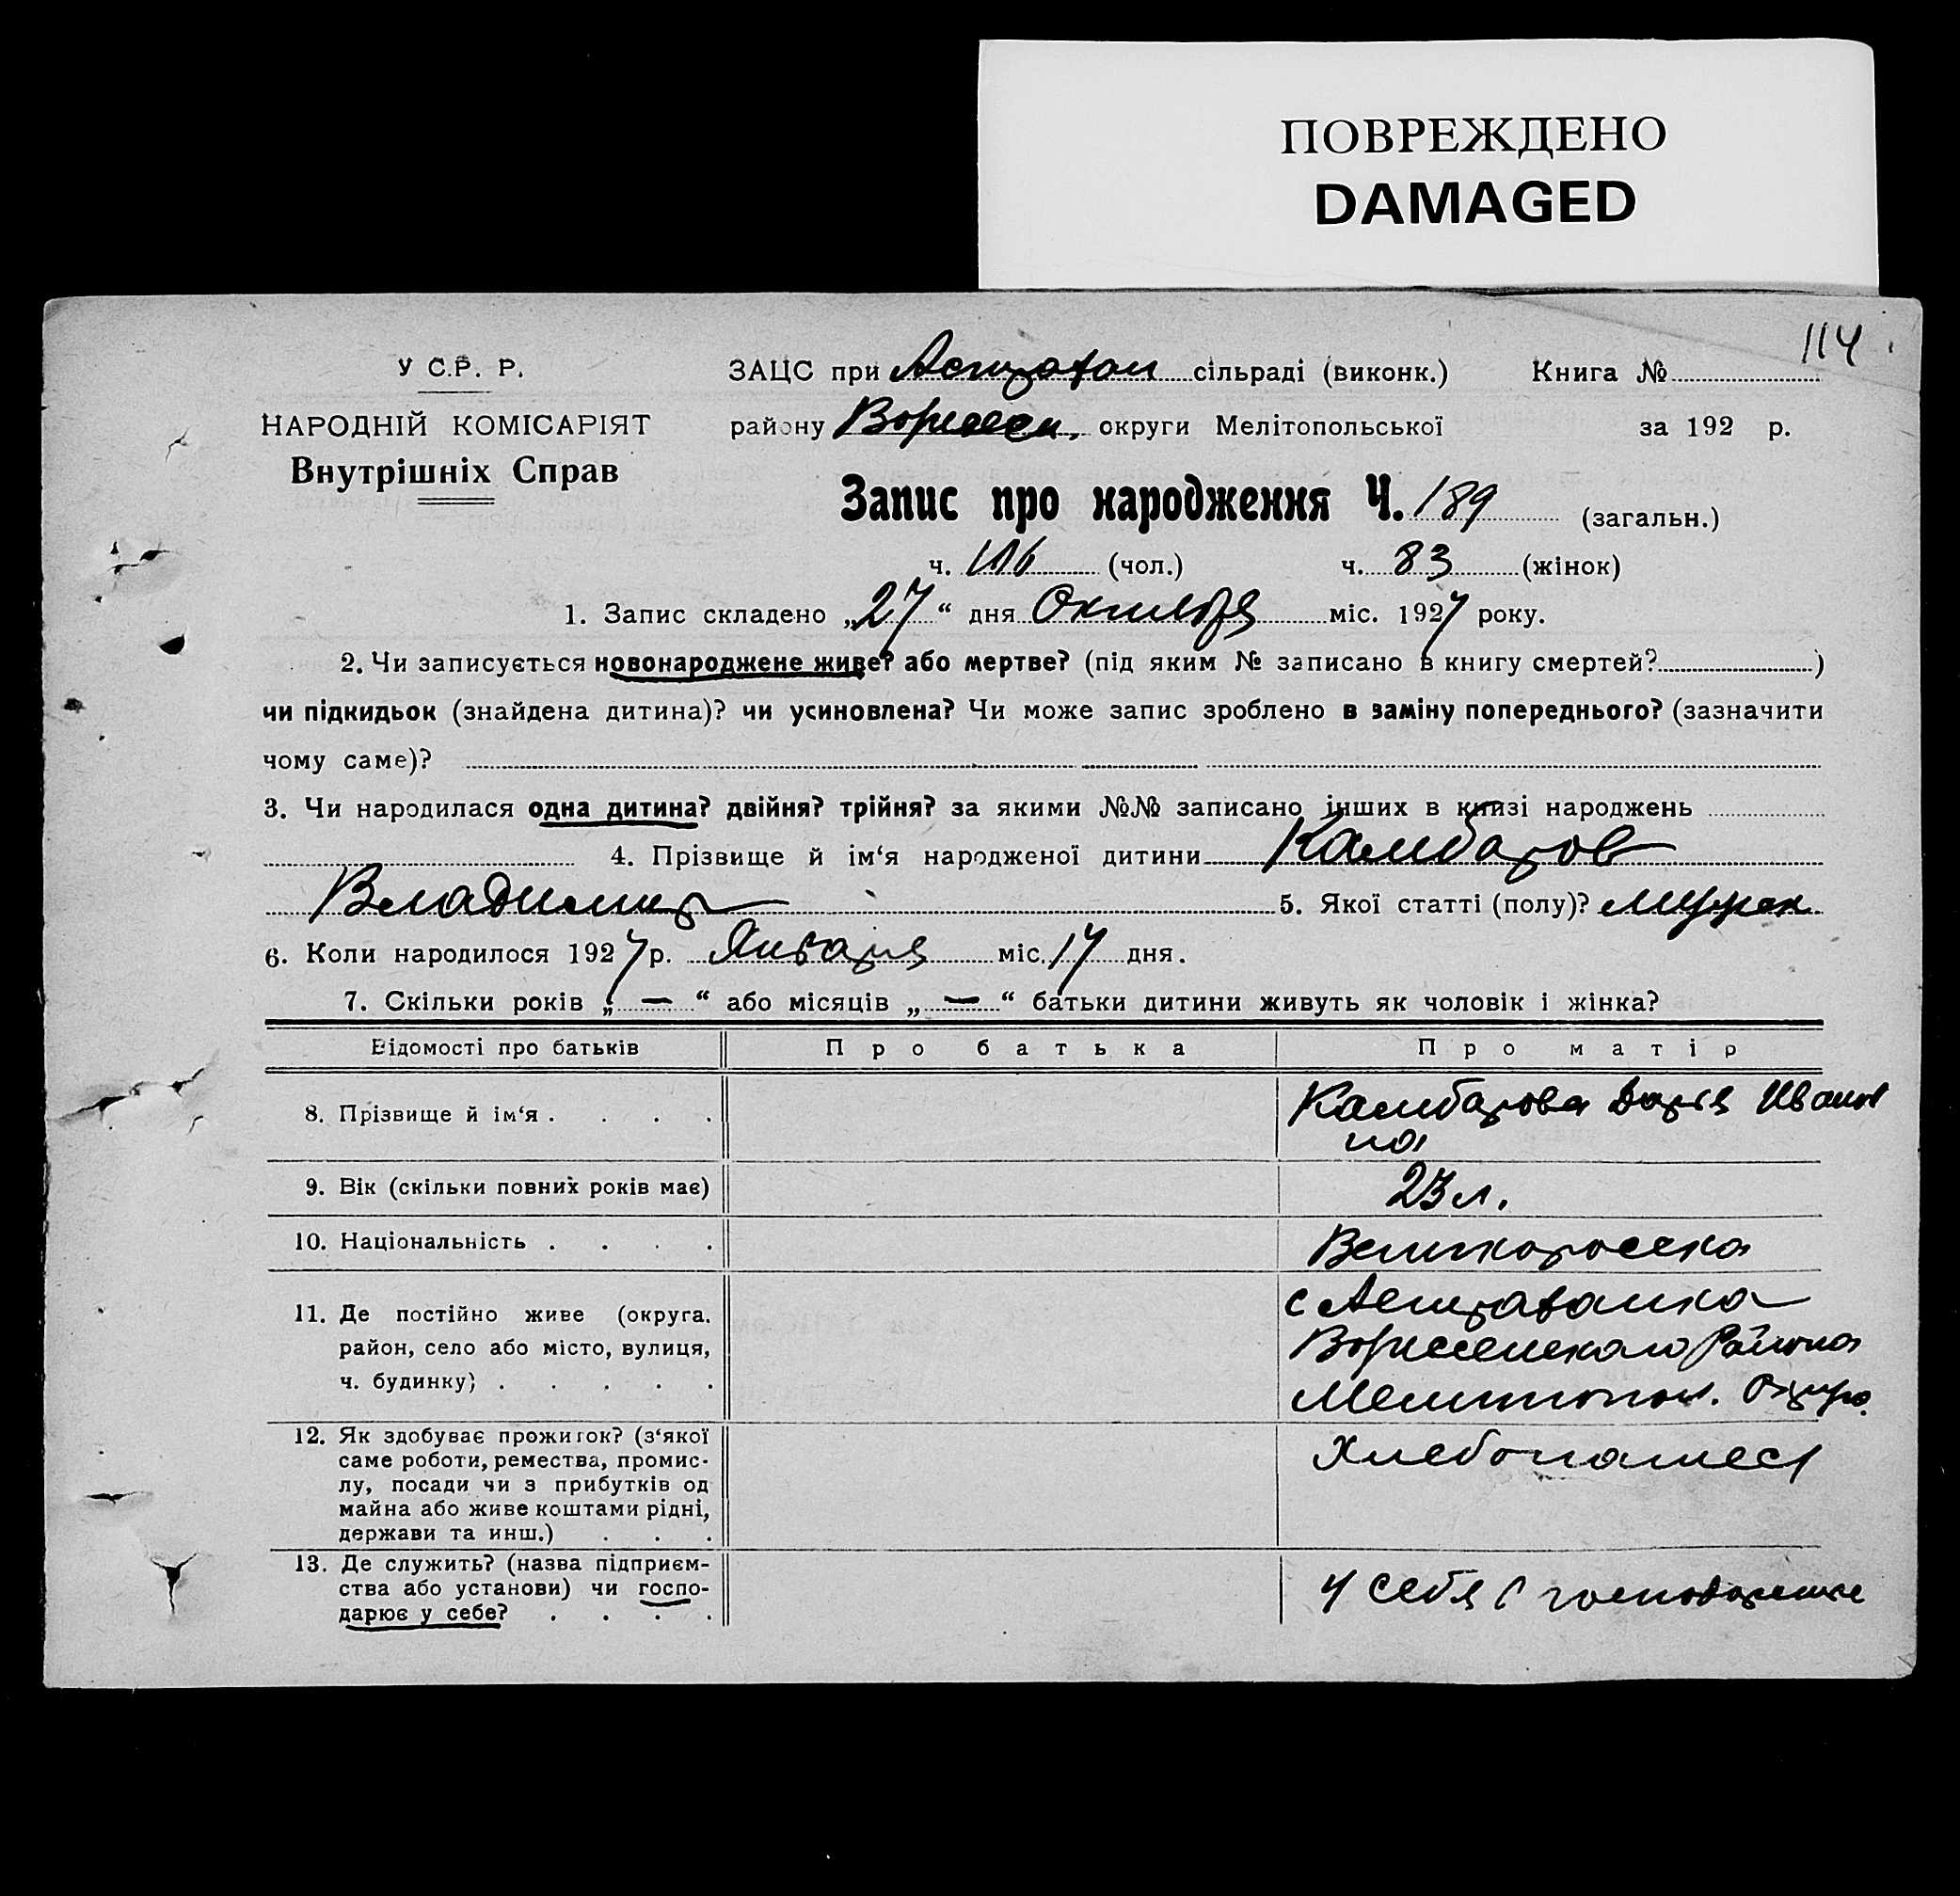 ПОВРЕЖДЕНО
DAMAGED
114
У С.Р. Р. ЗАЦС при Астрахан сільраді (виконк.) Книга №
НАРОДНІЙ КОМІСАРІЯТ району округи Мелітопольської за 192 р.
Внутрішніх Справ
Запис про народження Ч. 189 (загальн.)
ч. 106 (чол.) ч. 83 (жінок)
1. Запис складено „27“ дня Октября міс. 1927 року.
2. Чи записується новонароджене живе? або мертве? (під яким № записано в книгу смертей? )
чи підкидьок (знайдена дитина)? чи усиновлена? Чи може запис зроблено в заміну попереднього? (зазначити
чому саме)?
3. Чи народилася одна дитина? двійня? трійня? за якими №№ записано інших в книзі народжень
4. Прізвище й ім‘я народженої дитини Камбаров
Владимир 5. Якої статті (полу)? мужск
6. Коли народилося 1927 р. Января міс. 17 дня.
7. Скільки років „ — “ або місяців „ — “ батьки дитини живуть як чоловік і жінка?
Відомості про батьків Про батька Про матір
8. Прізвище й ім‘я . . . . Камбарова Дарія Иванов
на
9. Вік (скільки повних років має) 23 л.
10. Національність . . . . Великоросска
11. Де постійно живе (округа. с Астраханка
район, село або місто, вулиця, Района
ч. будинку) . . . . . Мелитопол. Окр.
12. Як здобуває прожиток? (з‘якої Хлебопашест
саме роботи, ремества, промис-
лу, посади чи з прибутків од
майна або живе коштами рідні,
держави та инш.) . . .
13. Де служить? (назва підприєм-
ства або установи) чи госпо- У себя
дарює у себе? . . . .